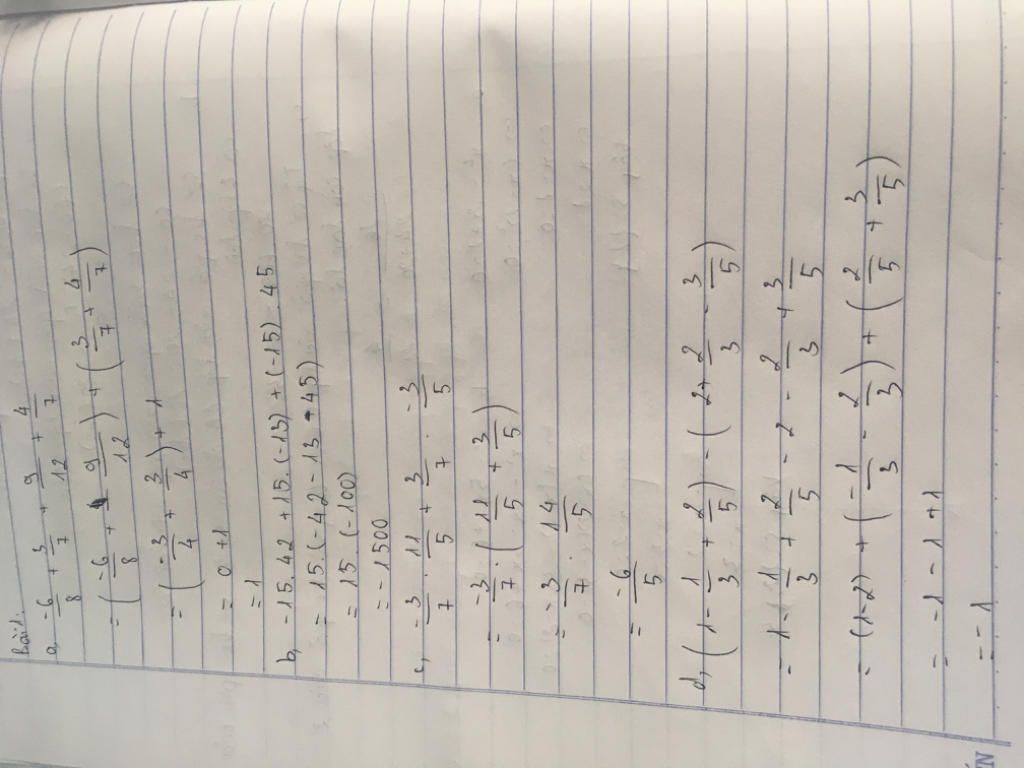 Bài 1.
a, -6/8 + 3/7 + 9/12 + 4/7
= (-6/8 + 9/12) + (3/7 + 4/7)
= (-3/4 + 3/4) + 1
= 0 + 1
= 1
b, -15.42 + 15.(-13) + (-15).45
= 15.(-42 - 13 - 45)
= 15.(-100)
= -1500
c, -3/7 . 11/5 + 3/7 . -3/5
= -3/7 . (11/5 + 3/5)
= -3/7 . 14/5
= -6/5
d, (1 - 1/3 + 2/5) - (2 + 2/3 - 3/5)
= 1 - 1/3 + 2/5 - 2 - 2/3 + 3/5
= (1-2) + (-1/3 - 2/3) + (2/5 + 3/5)
= -1 - 1 + 1
= -1